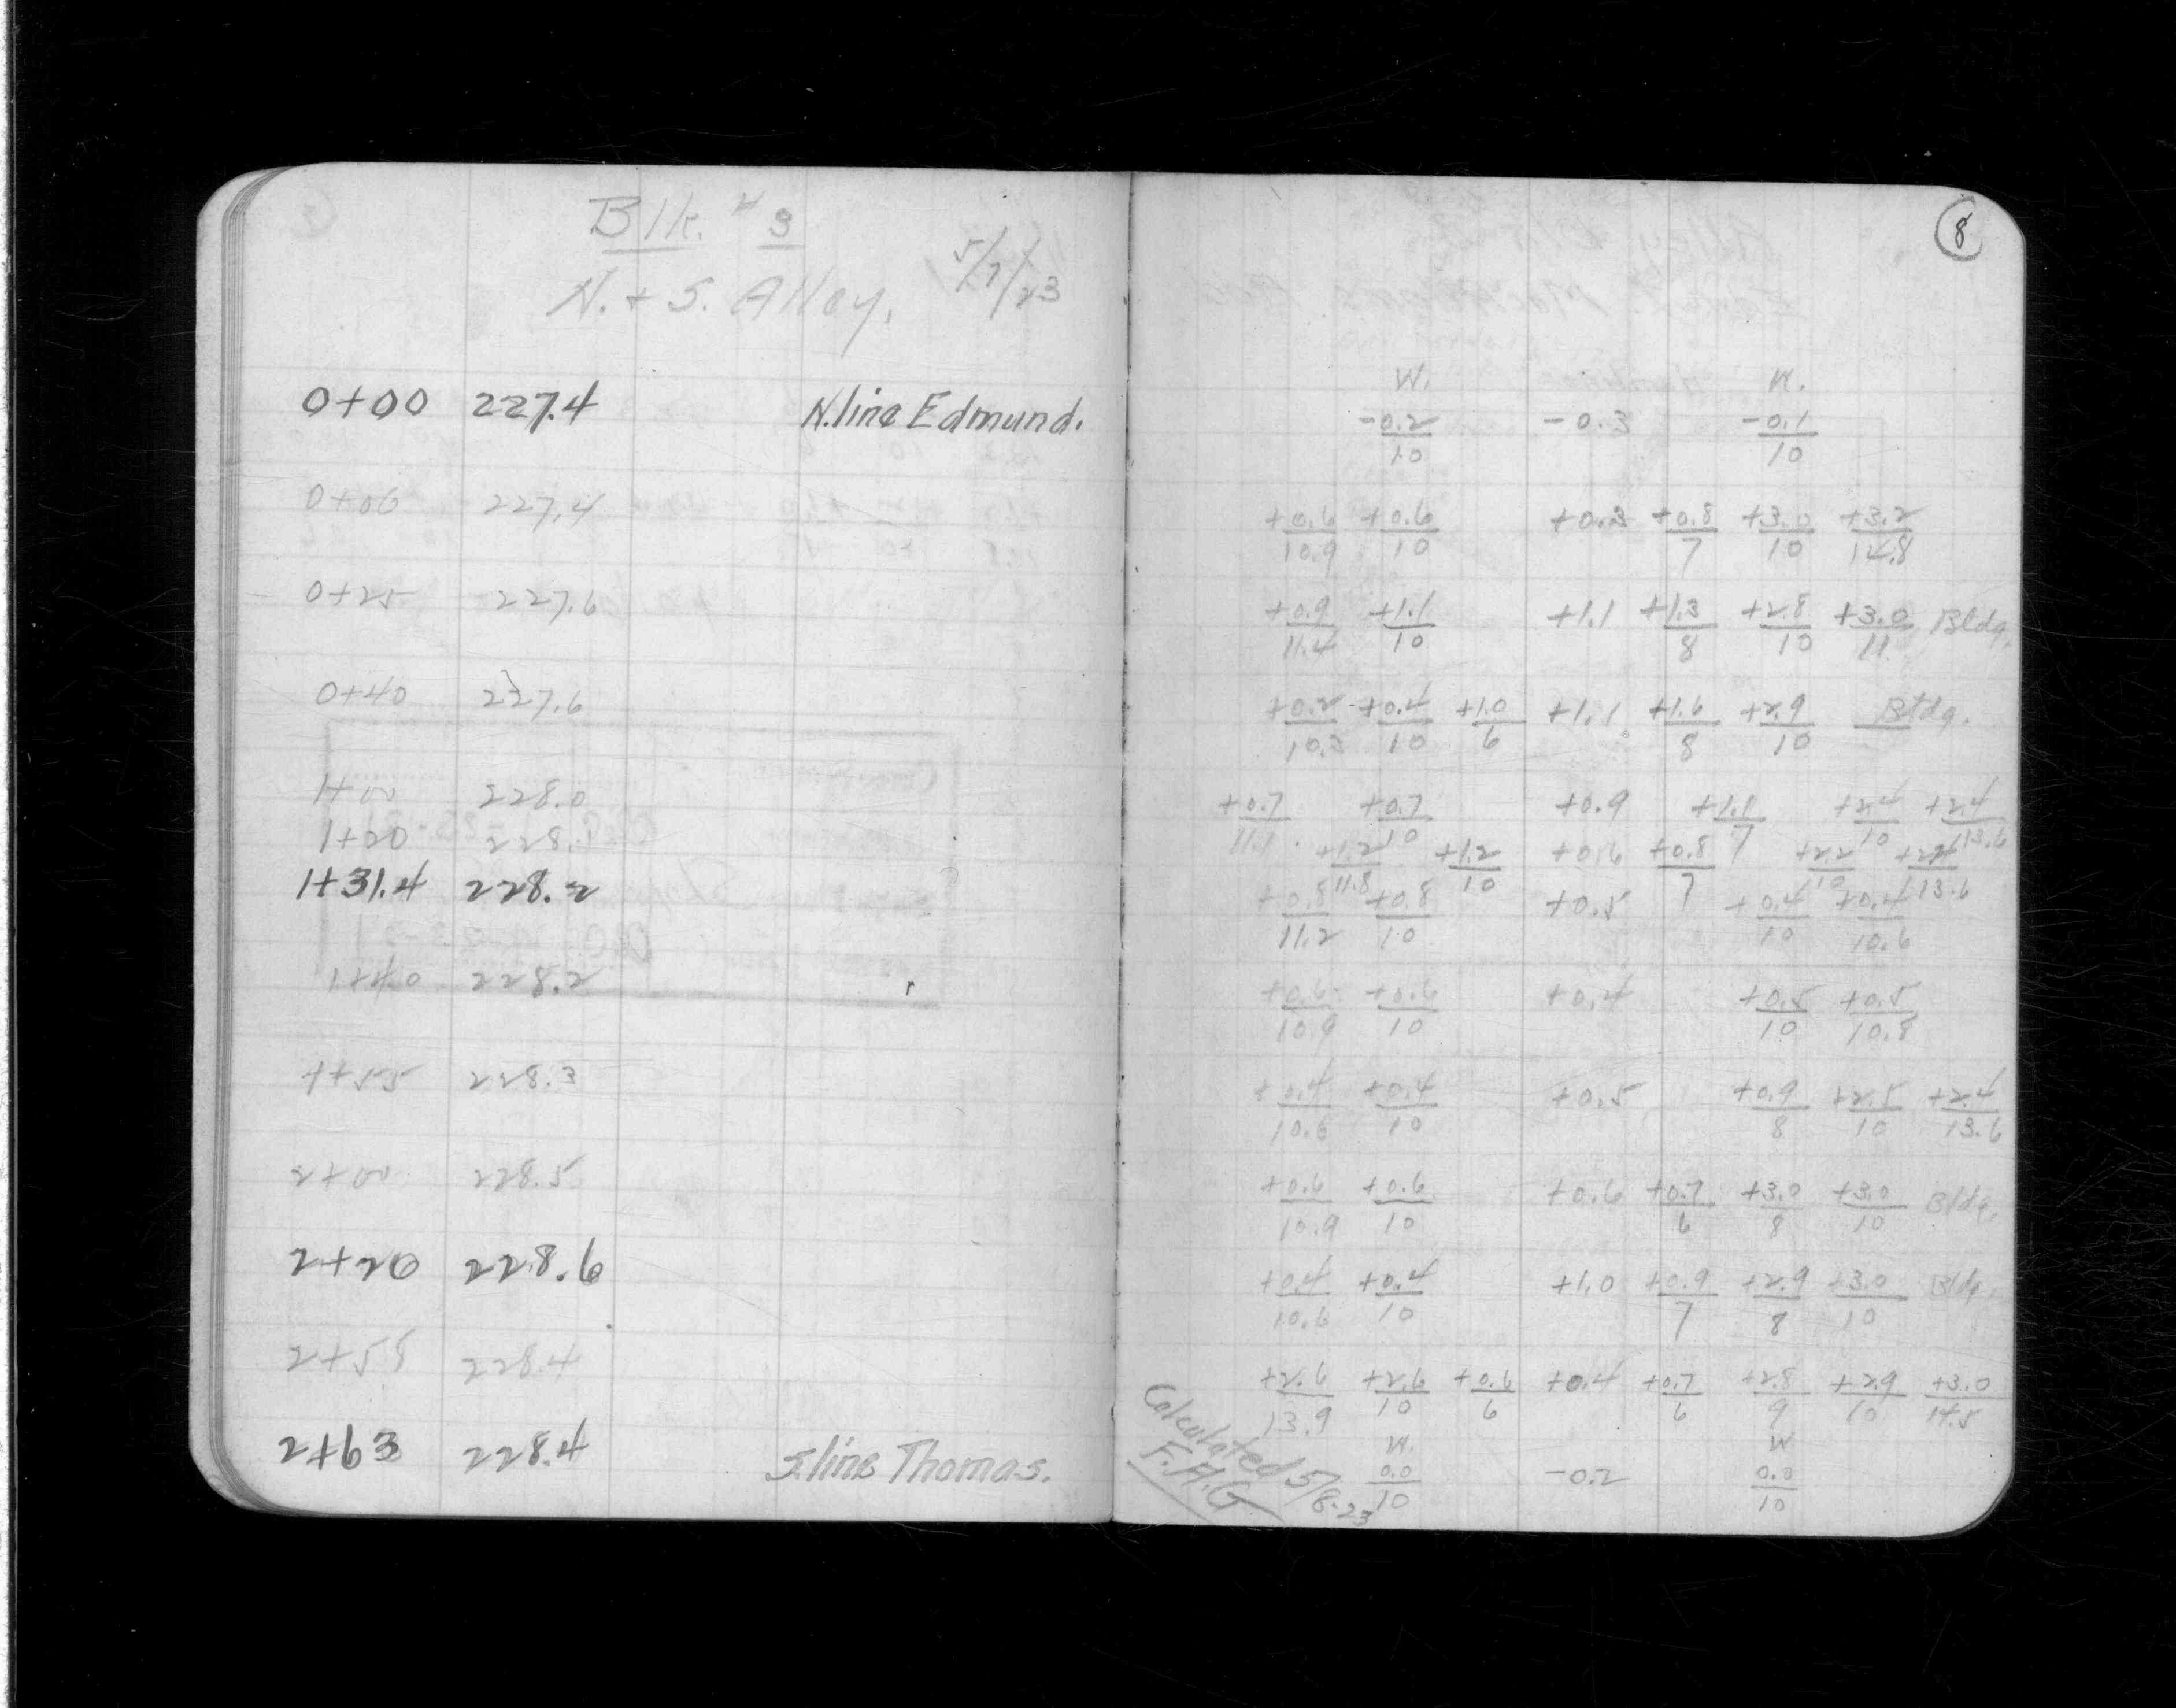 Blk. # 3
N. + S. Alley, 5/7/23
0+00 227.4 N.line Edmund.
0+06 227.4
0+25 227.6
0+40 227.6
1+00 228.0
1+20 228.1
1+31.4 228.2
1+40 228.2
1+55 228.3
2+00 228.5
2+20 228.6
2+58 228.4
2+63 228.4 S.line Thomas.
8
W. W.
-0.2 -0.3 -0.1
10 10
+0.6 +0.6 +0.3 +0.8 +3.0 +3.2
10.9 10 7 10 14.8
+0.9 +1.1 +1.1 +1.3 +2.8 +3.0 Bldg.
11.4 10 8 10 11
+0.2 +0.4 +1.0 +1.1 +1.6 +2.9 Bldg.
10.3 10 6 8 10
+0.7 +0.7 +0.9 +1.1 +2.4 +2.4
11.1 10 7 10 13.6
+1.2 +1.2 +0.6 +0.8 +2.2
11.8 10 7 10 13.6
+0.8 +0.8 +0.5 +0.4 +0.4
11.2 10 10 10.6
+0.6 +0.6 +0.4 +0.5 +0.5
10.9 10 10 10.8
+0.4 +0.4 +0.5 +0.9 +2.5 +2.4
10.6 10 8 10 13.6
+0.6 +0.6 +0.6 +0.7 +3.0 +3.0 Bldg.
10.9 10 6 8 10
+0.4 +0.4 +1.0 +0.9 +2.9 +3.0 Bldg.
10.6 10 7 8 10
+2.6 +2.6 +0.6 +0.4 +0.7 +2.8 +2.9 +3.0
13.9 10 6 6 9 10 14.5
W. W
0.0 -0.2 0.0
10 10
Calculated 5/8-23
F.H.G